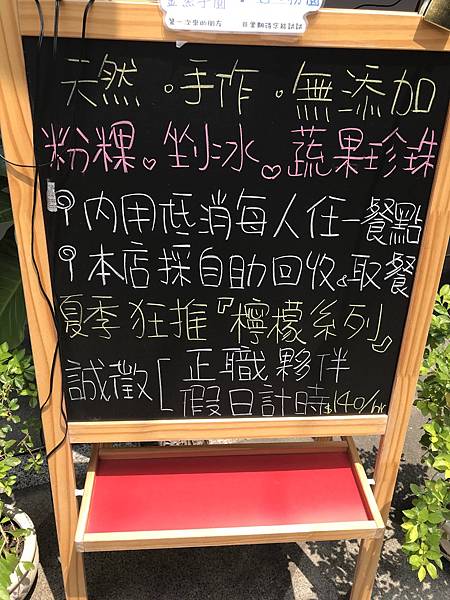 第一次來的朋友
天然。手作。無添加
粉粿。剉冰♡蔬果珍珠
內用低消每人任一餐點
本店採自助回收&取餐
夏季狂推『檸檬系列』
誠徵[正職夥伴
假日計時$140/hr